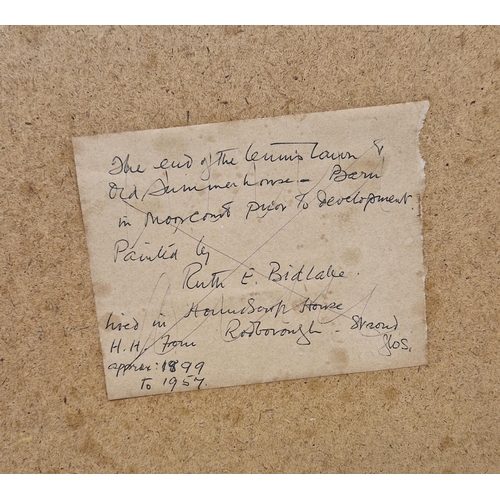 The end of the tennis lawn &
Old Summerhouse - Barn
in Moorcourt prior to development.
Painted by
Ruth E. Bidlake.
Hownscroft House
lived in Rodborough - Stroud
H.H. from Glos.
approx: 1899
to 1957